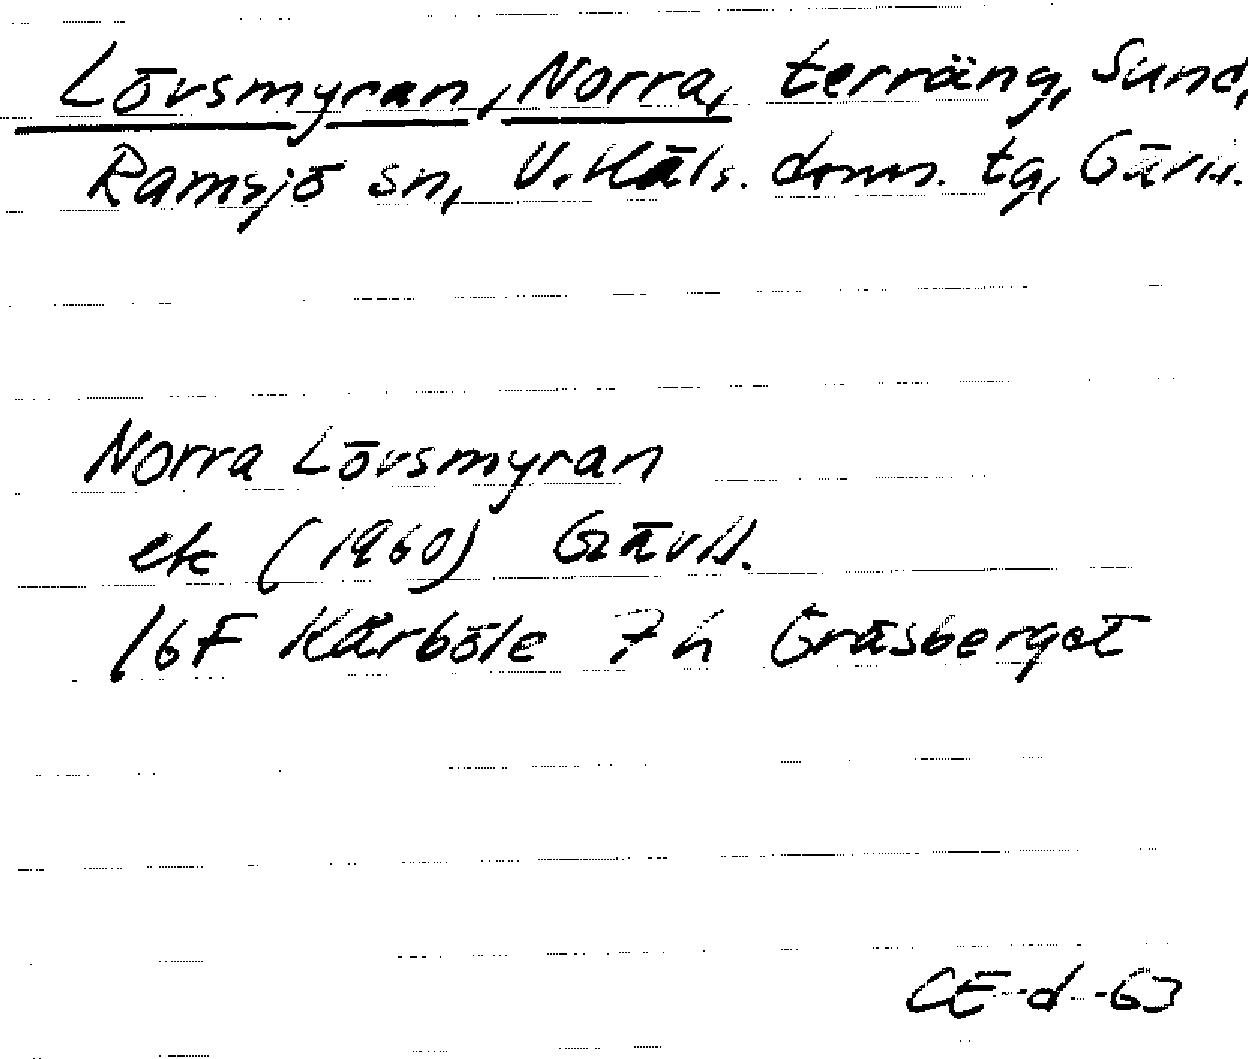 Lövsmyran, Norra, terräng, Sund,
Ramsjö sn, V. Häls. doms. tg, Gävlı.
Norra Lövsmyran
ek (1960) Gävll.
16F Kårböle 7h Gräsberget
CE-d-63